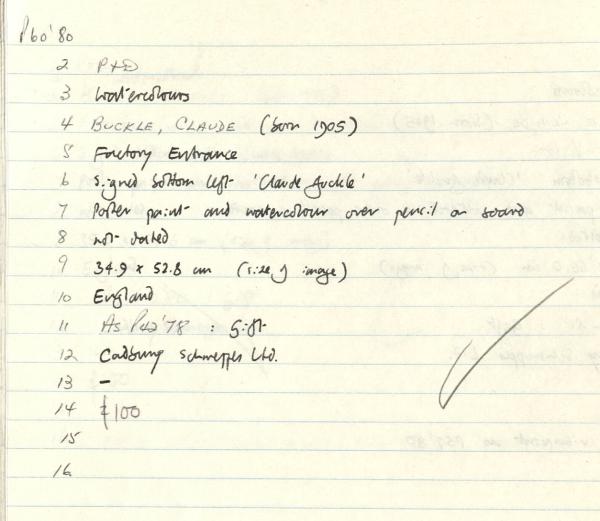 P60'80
2 P+D
3 Watercolours
4 BUCKLE, CLAUDE (born 1905)
5 Factory Entrance
6 Signed bottom left 'Claude Buckle'
7 Poster paint and watercolour over pencil on board
8 not dated
9 34.9 x 52.8 cm (size of image)
10 England
11 As P42'78 : Gift
12 Cadbury Schweppes Ltd.
13 –
14 £100
15
16